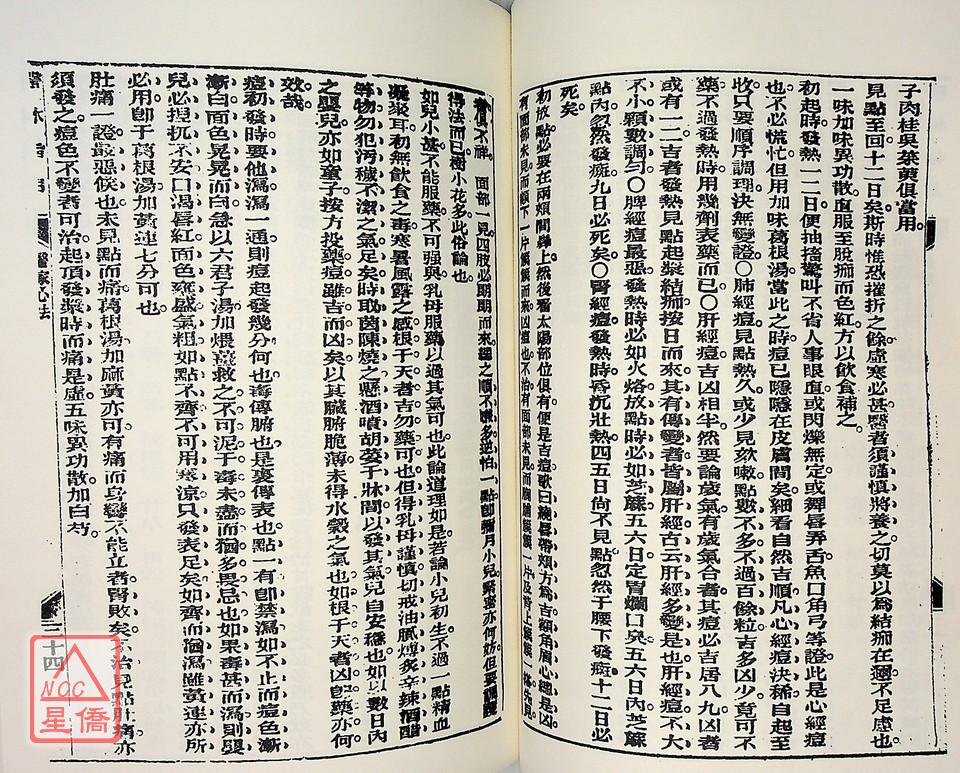 子肉桂吳茱萸俱當用。
見點至回十二日矣斯時惟恐摧折之餘虛寒必甚醫者須謹慎將養之切莫以為結痂在邇不足慮也。
一味加味異功散直服至脫痂而色紅方以飲食補之。
初起時發熱一二日便抽搐驚叫不省人事眼直或閃爍無定或舞唇弄舌魚口角弓等證此是心經痘
也不必慌忙但用加味葛根湯當此之時痘已隱隱在皮膚間矣細看自然吉順凡心經痘決稀自起至
收只要順序調理決無變證○肺經痘見點熱久或少見欬嗽點數不多不過百餘粒吉多凶少竟可不
藥不過發熱時用幾劑表藥而已○肝經痘吉凶相半然要論歲氣有歲氣合者其痘必吉居八九凶者
或有一二吉者發熱見點起漿結痂按日而來其有傳變者皆屬肝經古云肝經多變是也肝經痘不大
不小顆數調勻○脾經痘最惡發熱時必如火烙放點時必如芝蔴五六日定胃爛口臭五六日內芝蔴
點內忽然發癍九日必死矣○腎經痘發熱時昏沉壯熱四五日尚不見點忽然于腰下發癍十二日必
死矣。
初放點必要在兩頰間鼻上然後看太陽部位俱有便是吉痘歌曰繞唇帶頰方為吉額角眉心總是凶
有面部未見而頦下一片簇簇而來凶痘也不治有面部未見而胸脯簇簇一片及背上簇簇一搭先見
者俱不祥。面部一見四肢必朗朗而來總之順不嫌多逆怕一點卽彌月小兒緊密亦何妨但要調護
得法而已種小花多此俗論也
如兒小甚不能服藥不可强與乳母服藥以過其氣可也此論道理如是若論小兒初生不過一點精血
凝聚耳初無飲食之毒寒暑風露之感根于天者吉勿藥可也但得乳母謹慎切戒油膩煿炙辛辣酒醋
等物勿犯污穢不潔之氣足矣時取茵陳燒之懸酒噴胡荽于牀間以發其氣兒自安穩也如以數日內
之嬰兒亦如童子按方投藥痘雖吉而凶矣以其臟腑脆薄未得水穀之氣也如根于天者凶卽藥亦何
效哉。
痘初發時要他瀉瀉一通則痘起發幾分何也毒傳腑也是裏傳表也點一有卽禁瀉如不止而痘色漸
漸白面色晃晃而白急以六君子湯加煨薑救之不可泥于毒未盡而猶多畏忌也如果毒甚而瀉則嬰
兒必捏扤不安口渴唇紅面色壅盛氣粗如點不齊不可用寒涼只發表足矣如齊而猶瀉雖黃連亦所
必用卽于葛根湯加黃連七分可也
肚痛一證最惡候也未見點而痛葛根湯加麻黃亦可有痛而身彎不能立者腎敗矣不治見點肚痛亦
須發之痘色不變者可治起頂發漿時而痛是虛五味異功散加白芍。
醫家心法
二十四
NCC
星僑